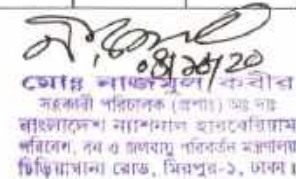 08/১০/20
মোঃ নাজমুল কবীর
সহকারী পরিচালক (প্রশাঃ) অঃ দাঃ
বাংলাদেশ ন্যাশনাল হারবেরিয়াম
পরিবেশ, বন ও জলবায়ু পরিবর্তন মন্ত্রণালয়
চিড়িয়াখানা রোড, মিরপুর-১, ঢাকা।